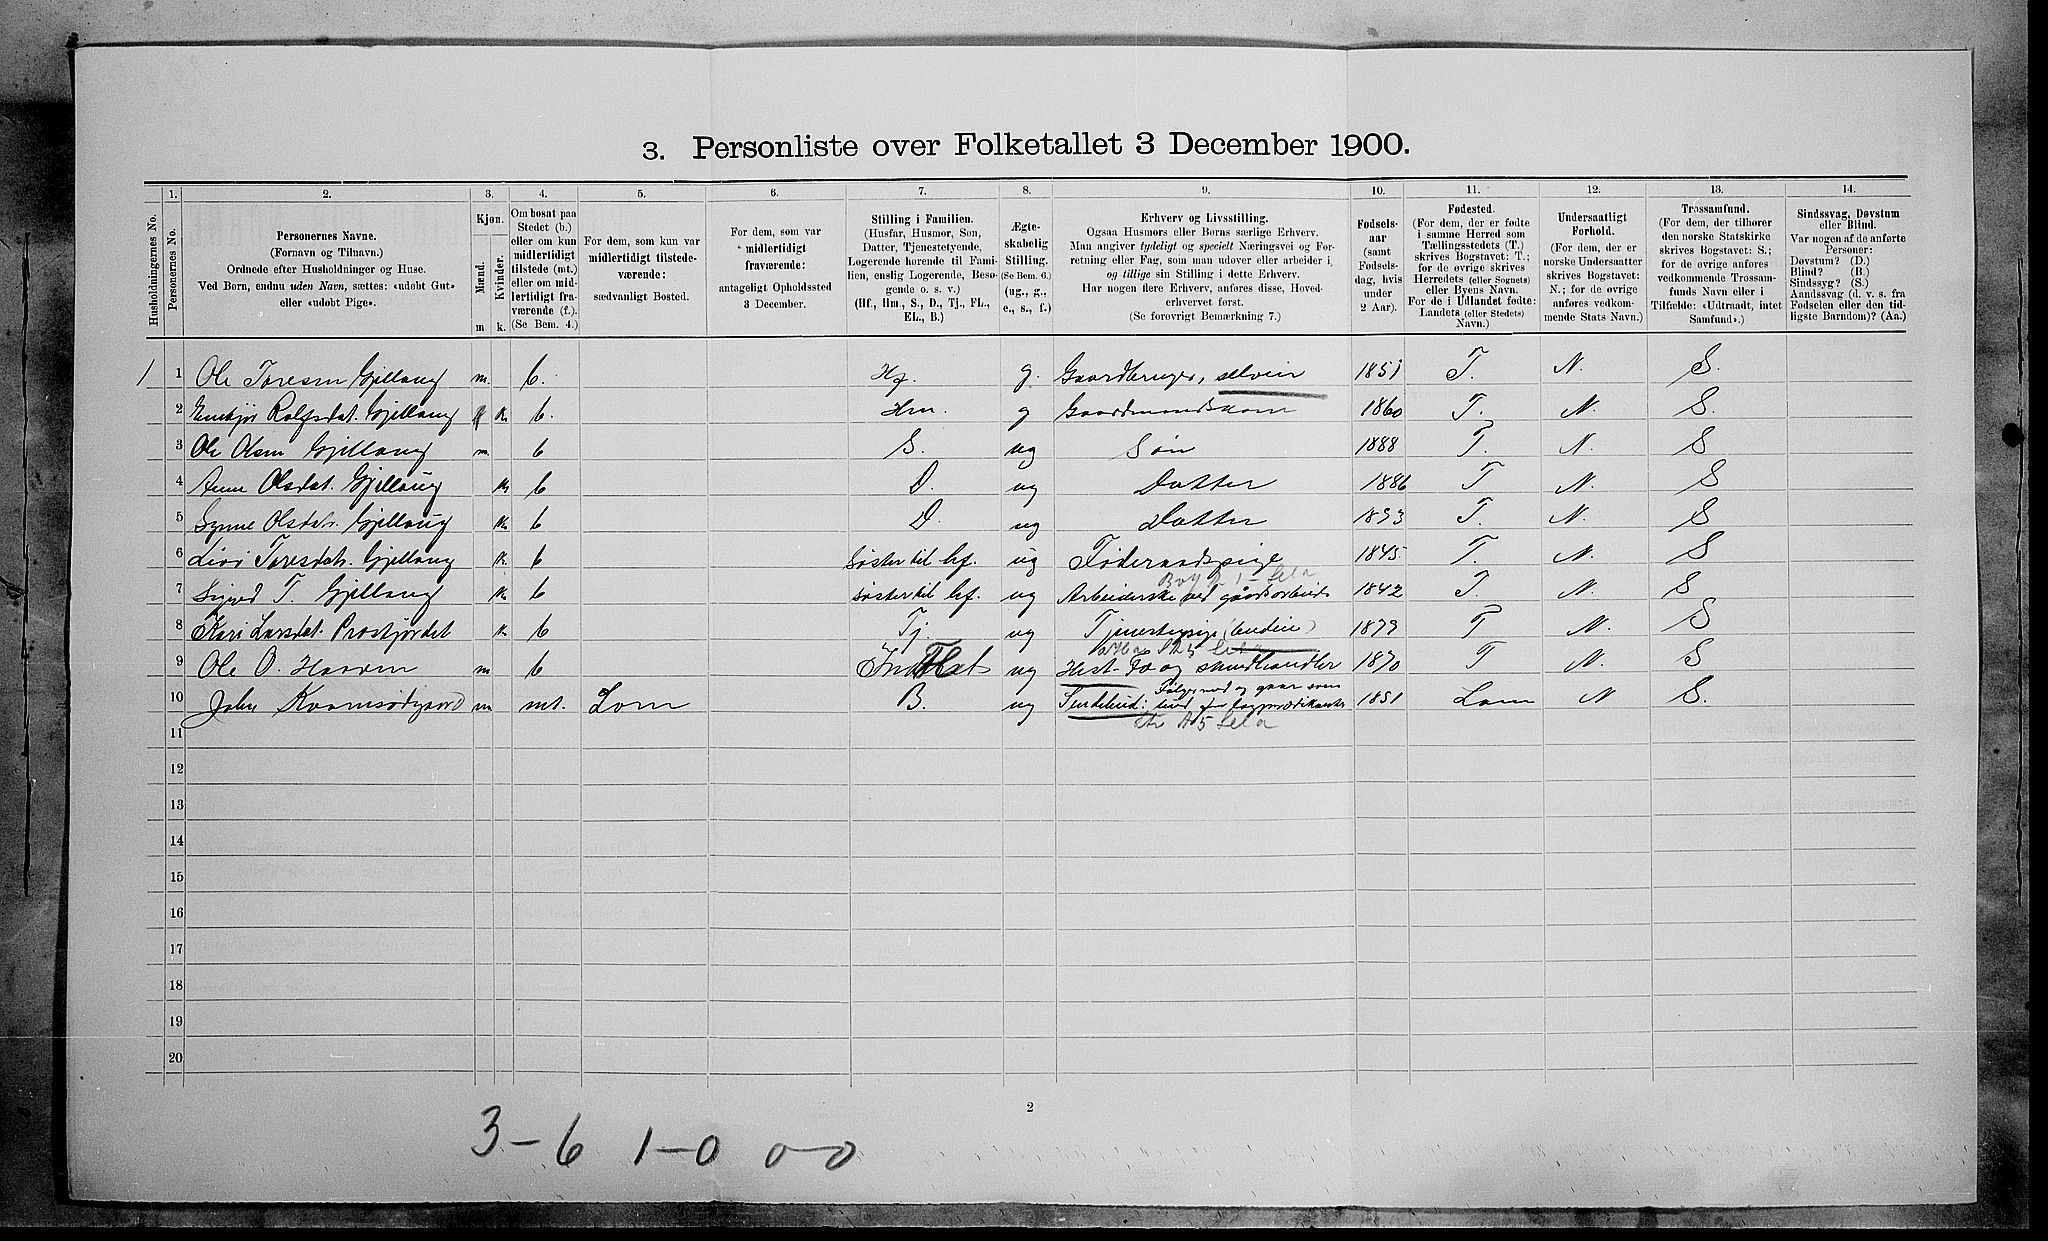 3. Personliste over Folketallet 3 December 1900.
Husholdningernes No.
1.
Personernes No.
2.
Personernes Navne.
(Fornavn og Tilnavn.)
Ordnede efter Husholdninger og Huse.
Ved Børn, endnu uden Navn, sættes: «udøbt Gut»
eller «udøbt Pige».
3.
Kjøn.
Mænd.
Kvinder.
m k.
4.
Om bosat paa
Stedet (b.)
eller om kun
midlertidigt
tilstede (mt.)
eller om mid-
lertidigt fra-
værende (f.).
(Se Bem. 4.)
5.
For dem, som kun var
midlertidigt tilstede-
værende:
sædvanligt Bosted.
6.
For dem, som var
midlertidigt
fraværende:
antageligt Opholdssted
3 December.
7.
Stilling i Familien.
(Husfar, Husmor, Søn,
Datter, Tjenestetyende,
Logerende hørende til Fami-
lien, enslig Logerende, Besø-
gende o. s. v.)
(Hf., Hm., S., D., Tj., FL.,
EL., B.)
8.
Ægte-
skabelig
Stilling.
(Se Bem. 6.)
(ug., g.,
e., s., f.)
9.
Erhverv og Livsstilling.
Ogsaa Husmors eller Børns særlige Erhverv.
Man angiver tydeligt og specielt Næringsvei og For-
retning eller Fag, som man udøver eller arbeider i,
og tillige sin Stilling i dette Erhverv.
Har nogen flere Erhverv, anføres disse, Hoved-
erhvervet først.
(Se forøvrigt Bemærkning 7.)
10.
Fødsels-
aar
(samt
Fødsels-
dag, hvis
under
2 Aar).
11.
Fødested.
(For dem, der er fødte
i samme Herred som
Tællingsstedets (T.)
skrives Bogstavet: T.;
for de øvrige skrives
Herredets (eller Sognets)
eller Byens Navn.
For de i Udlandet fødte:
Landets (eller Stedets)
Navn.)
12.
Undersaatligt
Forhold.
(For dem, der er
norske Undersaatter
skrives Bogstavet:
N.; for de øvrige
anføres vedkom-
mende Stats Navn.)
13.
Trossamfund.
(For dem, der tilhører
den norske Statskirke
skrives Bogstavet: S.;
for de øvrige anføres
vedkommende Trossam-
funds Navn eller i
Tilfælde: «Udtraadt, intet
Samfund».)
14.
Sindssvag, Døvstum
eller Blind.
Var nogen af de anførte
Personer:
Døvstum? (D.)
Blind? (B.)
Sindssyg? (S.)
Aandssvag (d. v. s. fra
Fødselen eller den tid-
ligste Barndom)? (Aa.)
1 1 Ole Toresen Gjillaug m. b. Hf. g. Gaardbruger, selveier 1851 T. N. S.
2 Rolfsdat. Gjillaug k b. Hm. g Gaardmandskone 1860 T. N. S.
3 Ole Olsen Gjillaug m. b S. ug Søn 1888 T. N. S
4 Anne Olsdat. Gjillaug k b D. ug Datter 1886 T N. S
5 Synne Olsdat. Gjillaug k b D. ug Datter 1893 T. N. S
6 Toresdat. Gjillaug k. b Søster til hf. ug Føderaadspige 1845 T. N. S
7 T. Gjillaug k b Søster til hf. ug Arbeiderske ved gaardsarbeide 1842 T. N. S
8 Kari Larsdat. k b Tj. ug Tjenestepige (budeie) 1879 T N. S
9 Ole O. m b ug Hest- Fæ og skindhandler 1870 T N. S
10 m mt. Lom B. ug 1851 Lom N S.
11
12
13
14
15
16
17
18
19
20
2
3-6 1-0 0-0